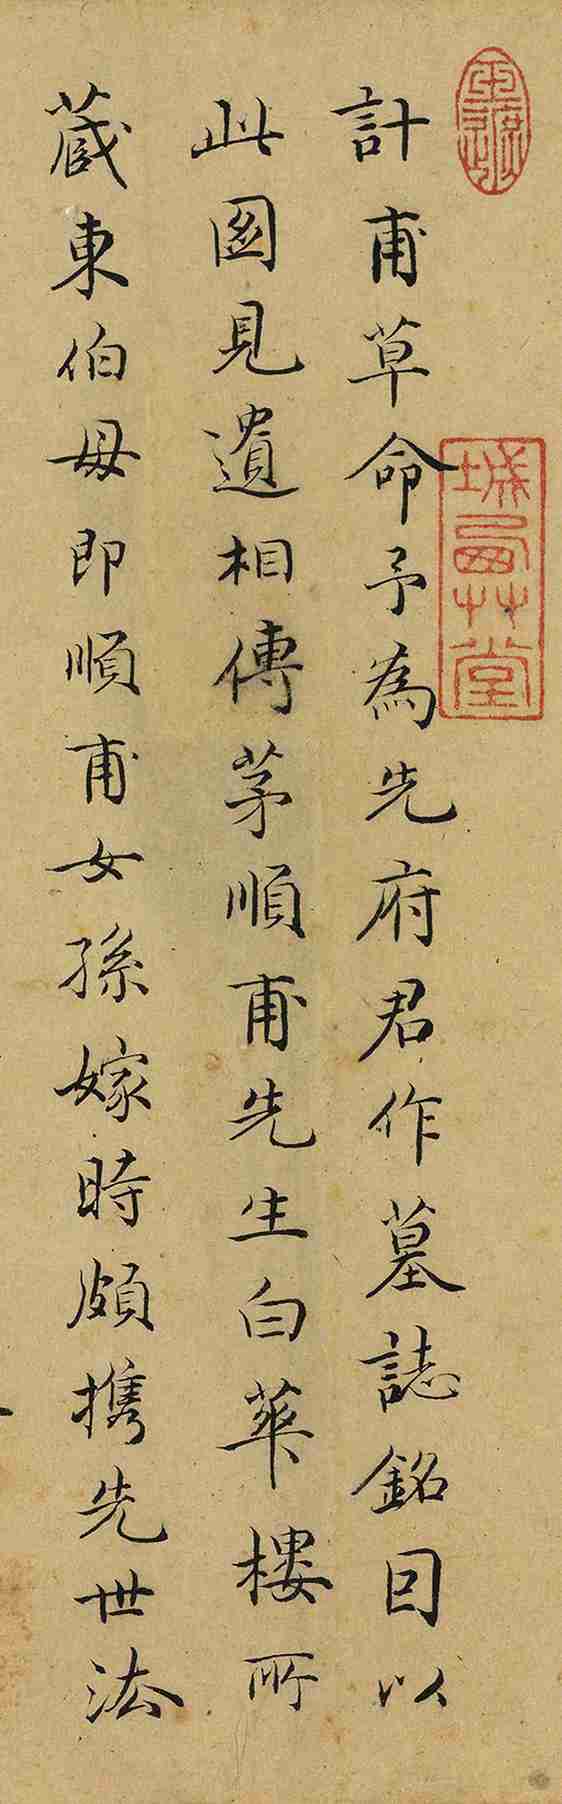 計甫草命予為先府君作墓誌銘因以
此圖見遺相傳茅順甫先生白華樓所
藏東伯母即順甫女孫嫁時頗攜先世法
草堂